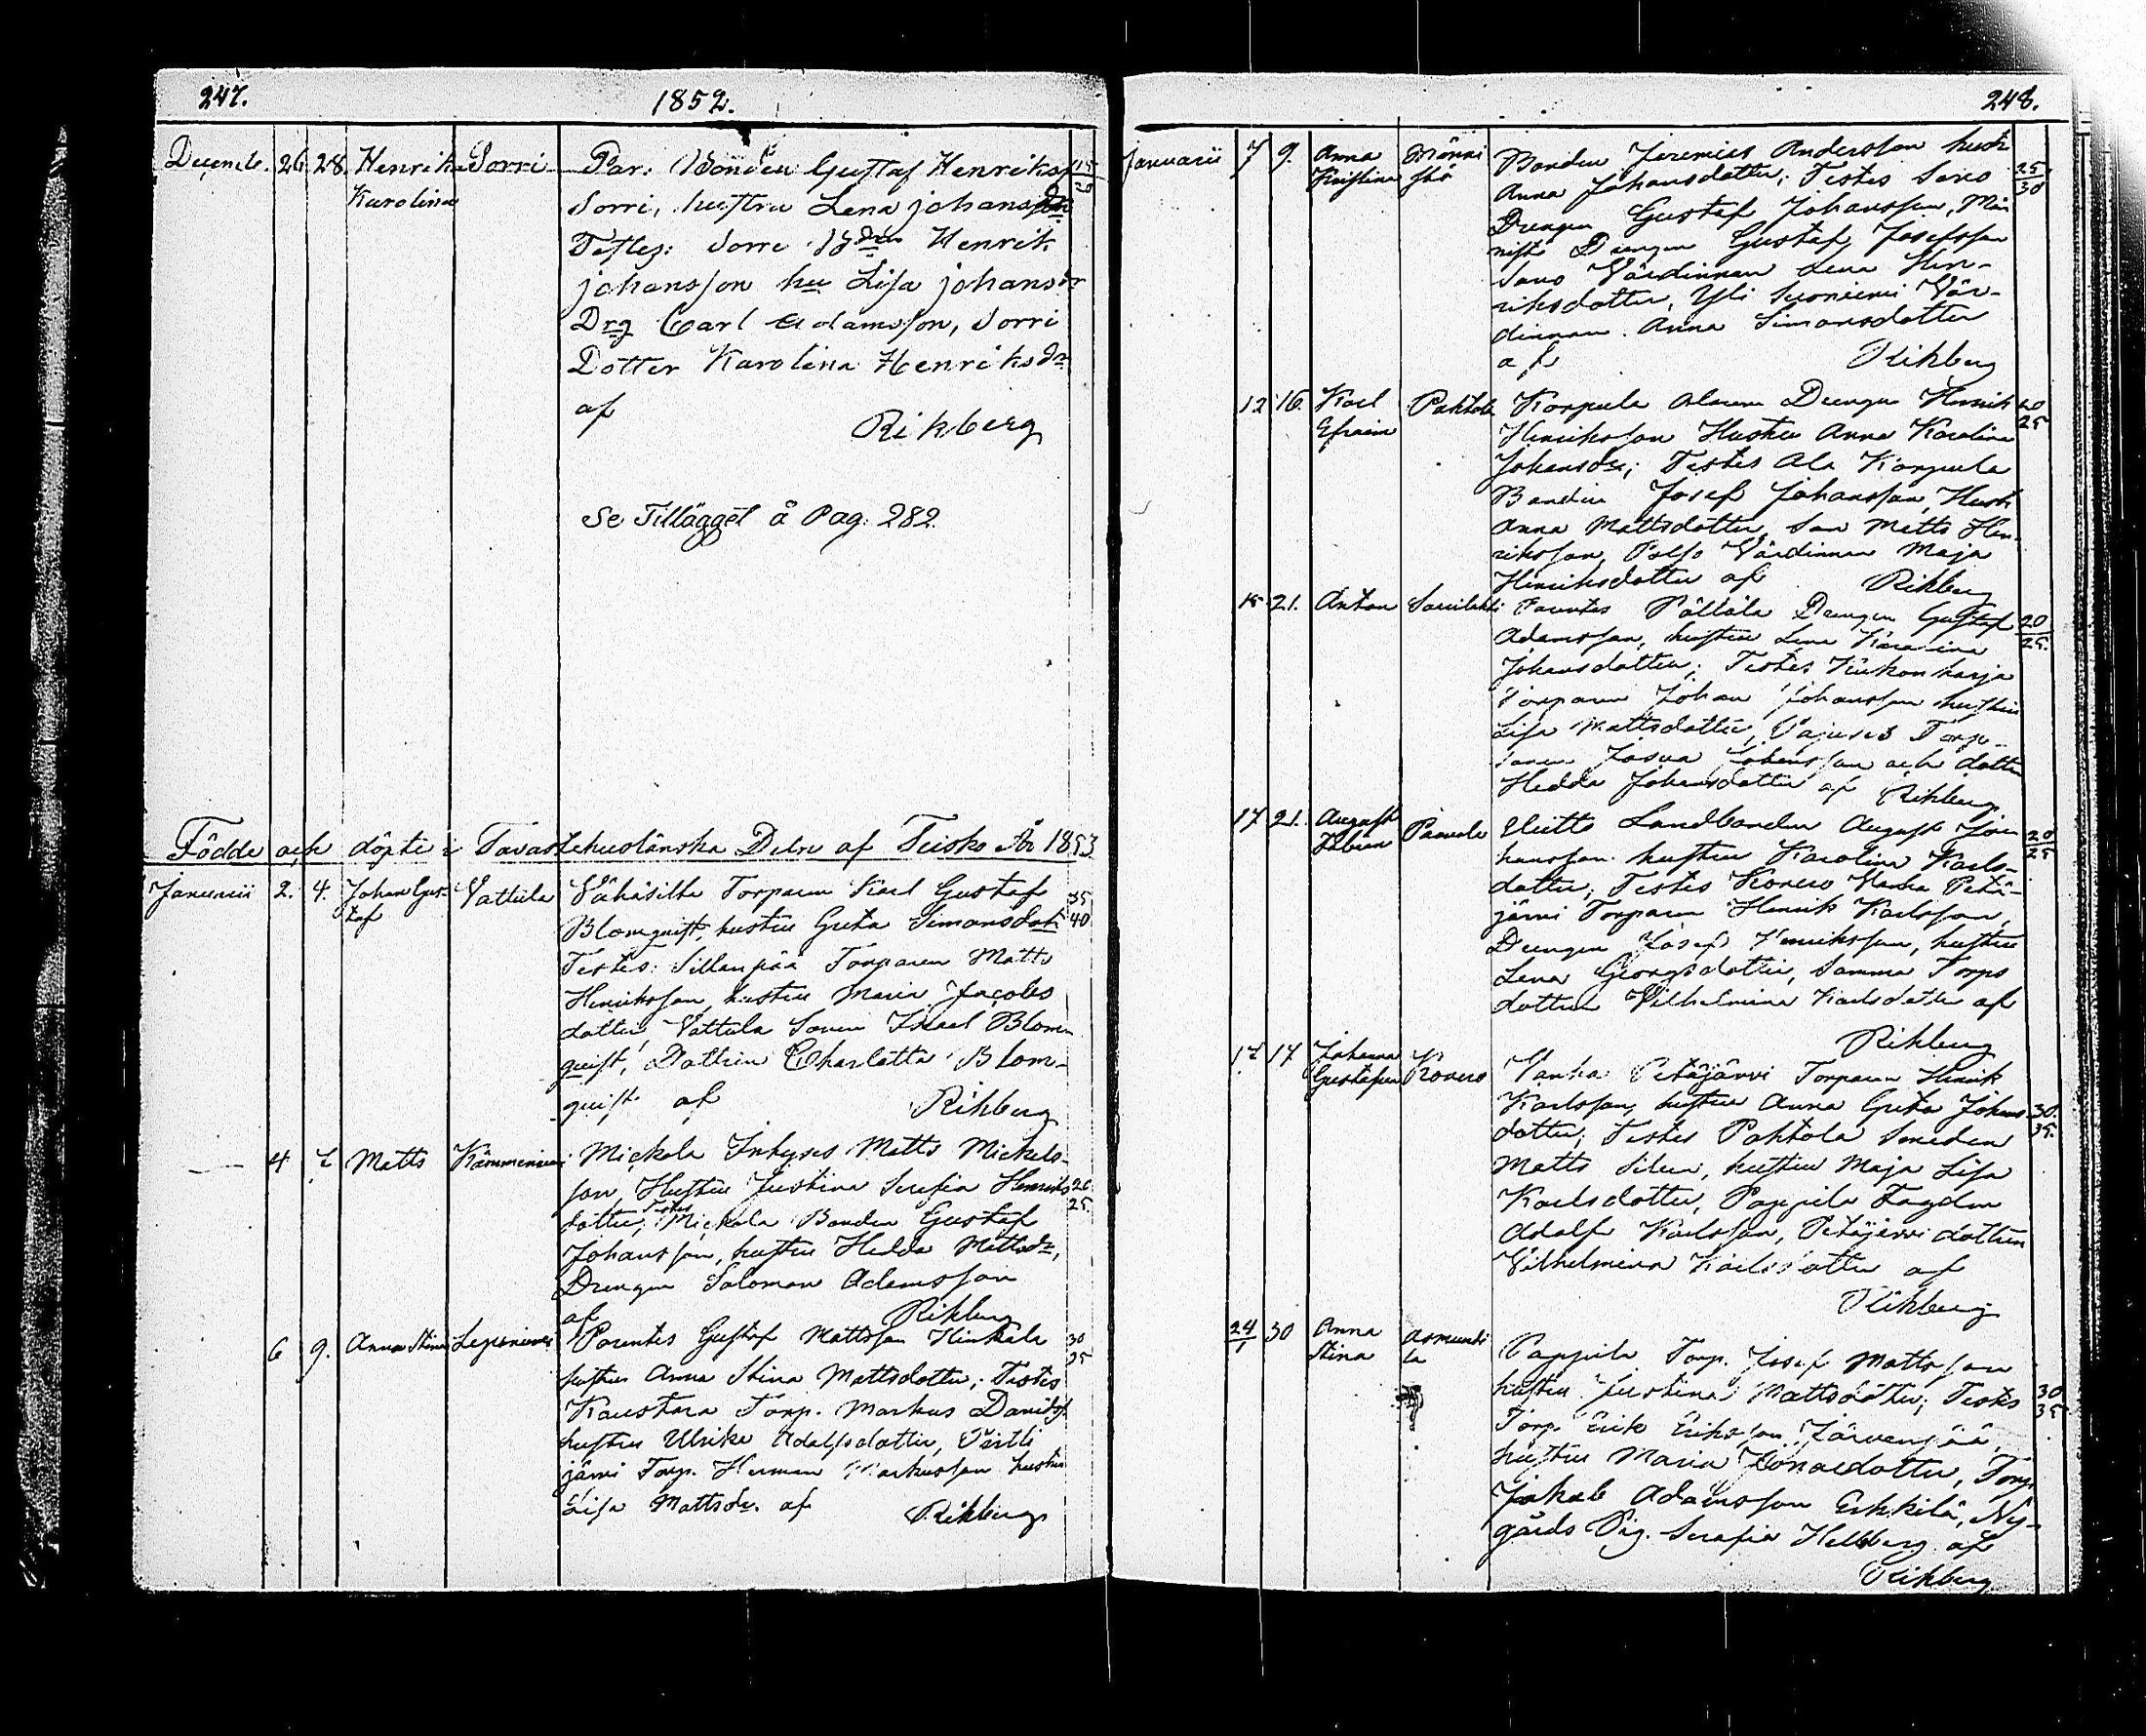 247.
1852.
Decemb. 26. 28. Henrika Sorri Par: Bonden Gustaf Henriks
Karolina Sorri, hustru Lena johans
Testes: Sorri Henrik
johansson hu Lisa johans
Drg Carl Adamsson, Sorri
Dotter Karolina Henriksdr
af
Rikberg
Se Tillägget å Pag. 282
Födde och döpte i Tavastehuslänska Delen af Teisko År 1853
Januarii 2. 4. Johan Gus- Vattula Vähäsilta Torparen Karl Gustaf 35
taf Blomquist, hustru Greta Simonsdot 40
Testes: Sillanpää Torparen Matts
Henriksson, hustru Maria Jacobs
dotter, Vattula Sonen Israel Blom-
quist, Dottren Charlotta Blom-
quist af Rikberg
4 7 Matts Kämmenniemi Mickola Inhyses Matts Mickels-
son, Hustru Justina Serafia Henriks 20
dotter, Testes Mickola Bonden Gustaf 25
Johansson, hustru Hedda Mattsdr,
Drengen Salomon Adamsson
af Rikberg
6 9. Anna Stina Leponiemi Parentes Gustaf Mattsson Hinkala 30
hustru Anna Stina Mattsdotter; Testes 35
Kaustara Torp. Markus Davidss.
hustru Ulrika Adolfsdotter,
järvi Torp. Herman Markusson hustru
Lisa Mattsdr. af Rikberg
248.
Januarii 7 9. Anna Männi Bonden Jeremias Andersson hustr
Kristina stö Anna Johansdotter; Testes Savo 25
Drengen Gustaf Johansson, Män 30
nistö Drengen Gustaf Josefsson
Savo Värdinnan Lena Hen-
riksdotter, Yli Suoniemi Vär-
dinnan Anna Simonsdotter
af Rikberg
12 16. Karl Pahtola Korpula Drengen Henrik 20
Efraim Henriksson Hustru Anna Karolina 25
Johansdr; Testes Ala Korpula
Bonden Josef Johansson, Hustr
Anna Mattsdotter, Son Matts Hen-
riksson, Värdinnan Maja
Henriksdotter af Rikberg
15 21. Anton Savilahti Parentes Pällälä Drengen Gustaf 20
Adamsson, hustru Lena Karolina 25.
Johansdotter; Testes Kiikonharja
Torparen Johan Johansson hustru
Lisa Mattsdotter, Torp-
Josua Johansson och dotter
Hedda Johansdotter af Rikberg
17 21. August Paavola Landbonden August Jo- 20
Fabian hansson hustru Karolina Karls- 25
dotter; Testes Kovero Vanha Petä-
järvi Torparen Henrik Karlsson,
Drengen Josef Henriksson, hustru
Lena Georgsdotter, Samma Torps
dotter Vilhelmina Karlsdotter af
Rikberg
17 Johanna Vanha Petäjärvi Torparen Henrik
Gustafva Kovero Karlsson, hustru Anna Greta Johans 30.
dotter; Testes Pahtola Smeden 35.
Matts Silen, hustru Maja Lisa
Karlsdotter, Pappila Tragden
Adolf Karlsson, Petäjärvi dottren
Vilhelmina Karlsdotter af
Rikberg
24 30 Anna Asmundi
Stina la Pappila Torp. Josef Mattsson
hustru Justina Mattsdotter; Testes 30
Torp. Erik Eriksson Järvenpää, 35
hustru Maria Jonaedotter, Torp.
Jakob Adamsson Erkkilä, Ny-
gårds Pig. Serafia Hellberg af
Rikberg